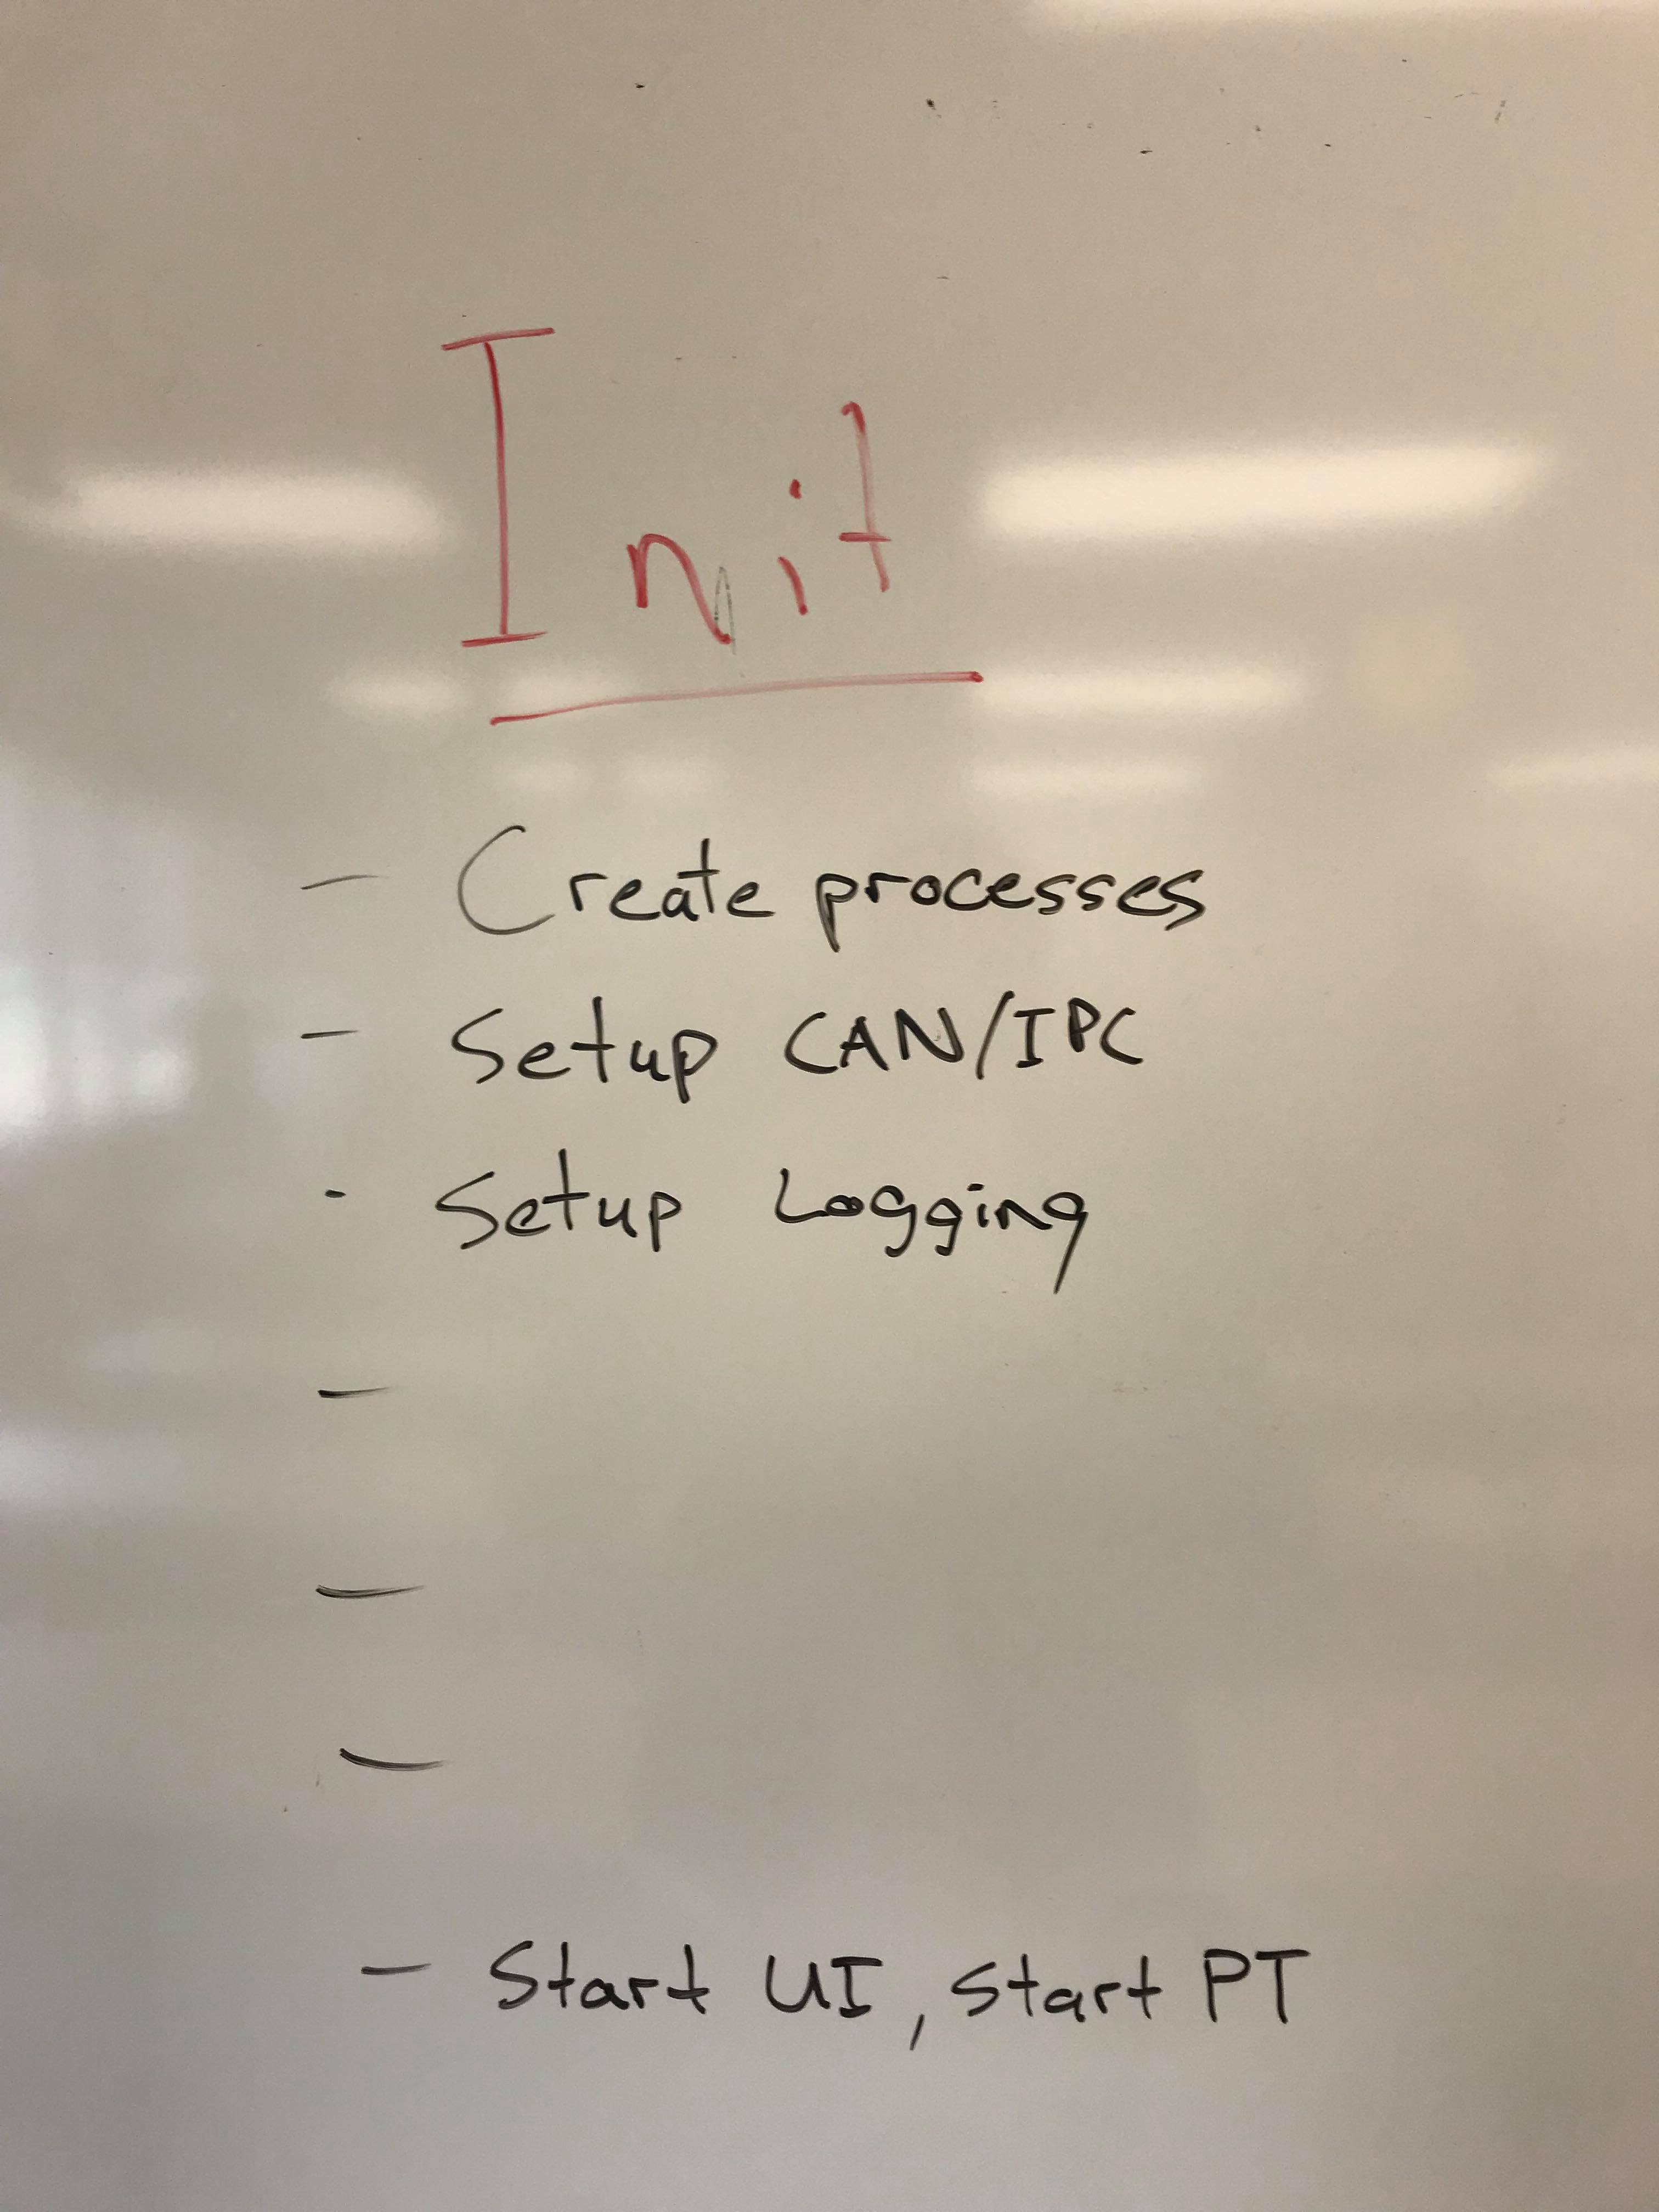 Init
- Create processes
- Setup CAN/IPC
- Setup Logging
-
-
-
- Start UI, Start PT